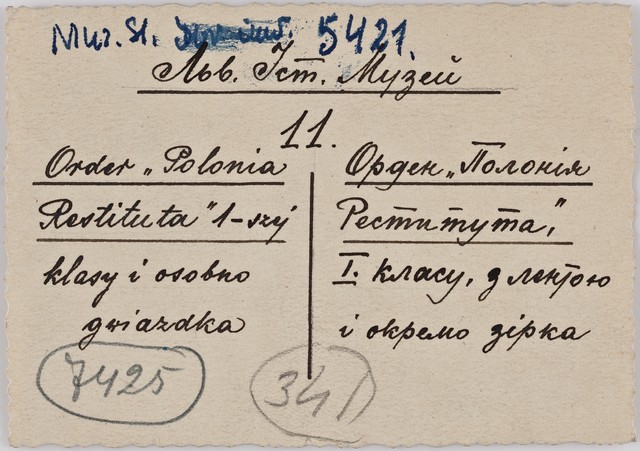 Muz. St. 5421.
Льв. Іст. Музей
11.
Order „Polonia
Restituta" 1-szy
klasy i osobno
gwiazdka
Орден „Полонія
Реститута,"
I. класу, з лентою
і окремо зірка
7425
341